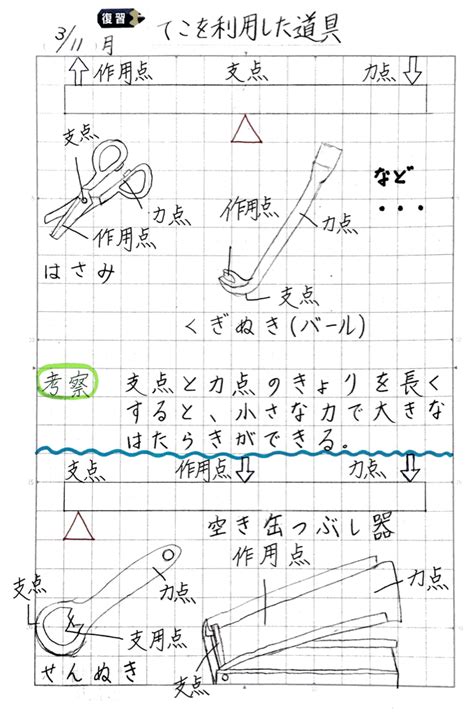 復習
3/11 月 てこを利用した道具
作用点 支点 力点
支点
力点
作用点
はさみ
作用点
力点
支点
くぎぬき(バール)
など
・・・
考察 支点と力点のきょりを長く
すると、小さな力で大きな
はたらきができる。
支点 作用点 力点
空き缶つぶし器
支点
力点
支用点
せんぬき
作用点
力点
支点